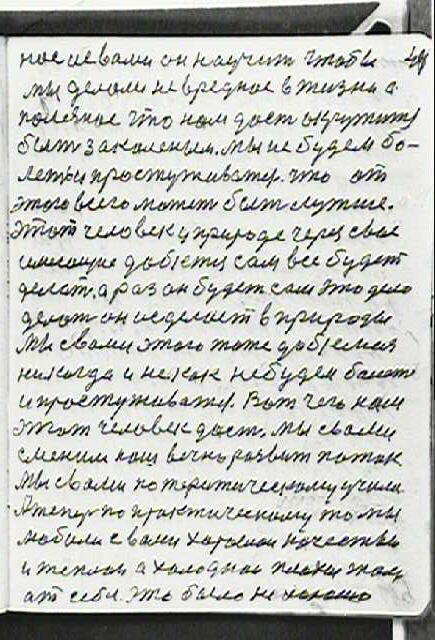 нас с вами он научит чтобы
мы делали не вредное в жизни а
полезное что нам даст окружить
быть закаленым. мы не будем бо-
леть и простуживатся. что от
этого всего может быть лутше.
Этот человек у природе через свое
добется сам все будет
делат, а раз он будет сам это дело
делат он исделает в природы
Мы свами этого тоже добемся
никогда и некак не будем болеть
и простуживатся. Вот чего нам
этот человек даст. мы свами
сменим наш вечно развит поток
Мы свами по теоритическому учили
Атепер по практическому то мы
любили свами хорошое качество
и теплое а холодное плохое
от себя. это было не хорошо